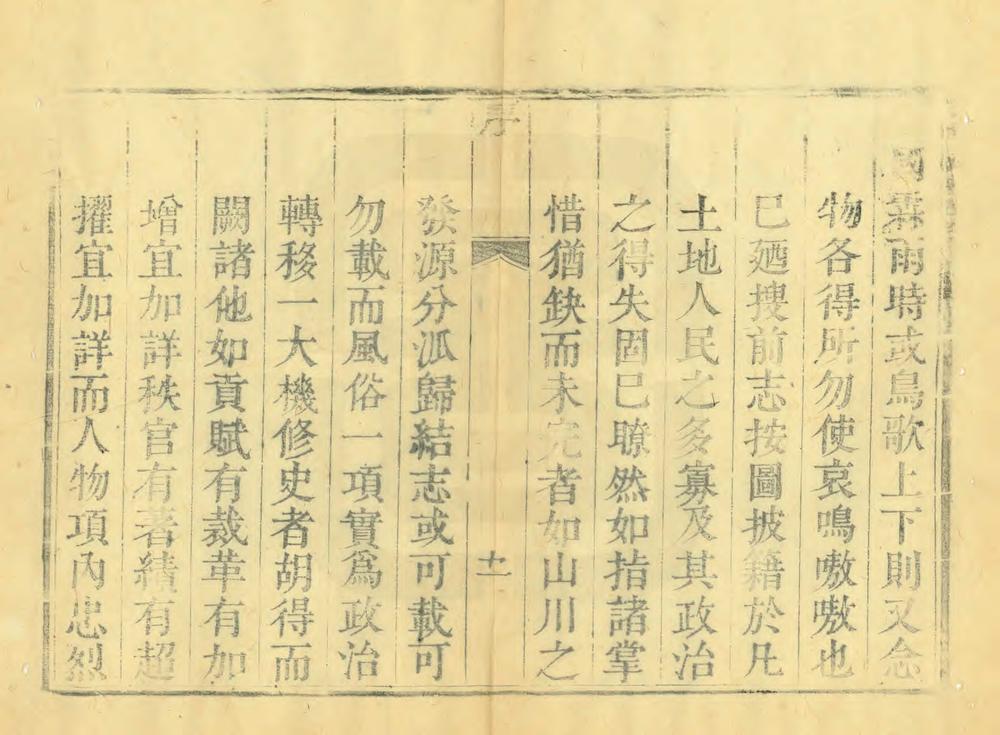 國霖雨時或鳥歌上下則又念
物各得所勿使哀鳴嗷嗷也
巳廼搜前志按圖披籍於凡
土地人民之多寡及其政治
之得失固巳瞭然如指諸掌
惜猶缺而未完者如山川之
序
十一
發源分派歸結志或可載可
勿載而風俗一項實爲政治
轉移一大機修史者胡得而
闕諸他如貢賦有裁革有加
增宜加詳秩官有著績有超
擢宜加詳而人物項內忠烈